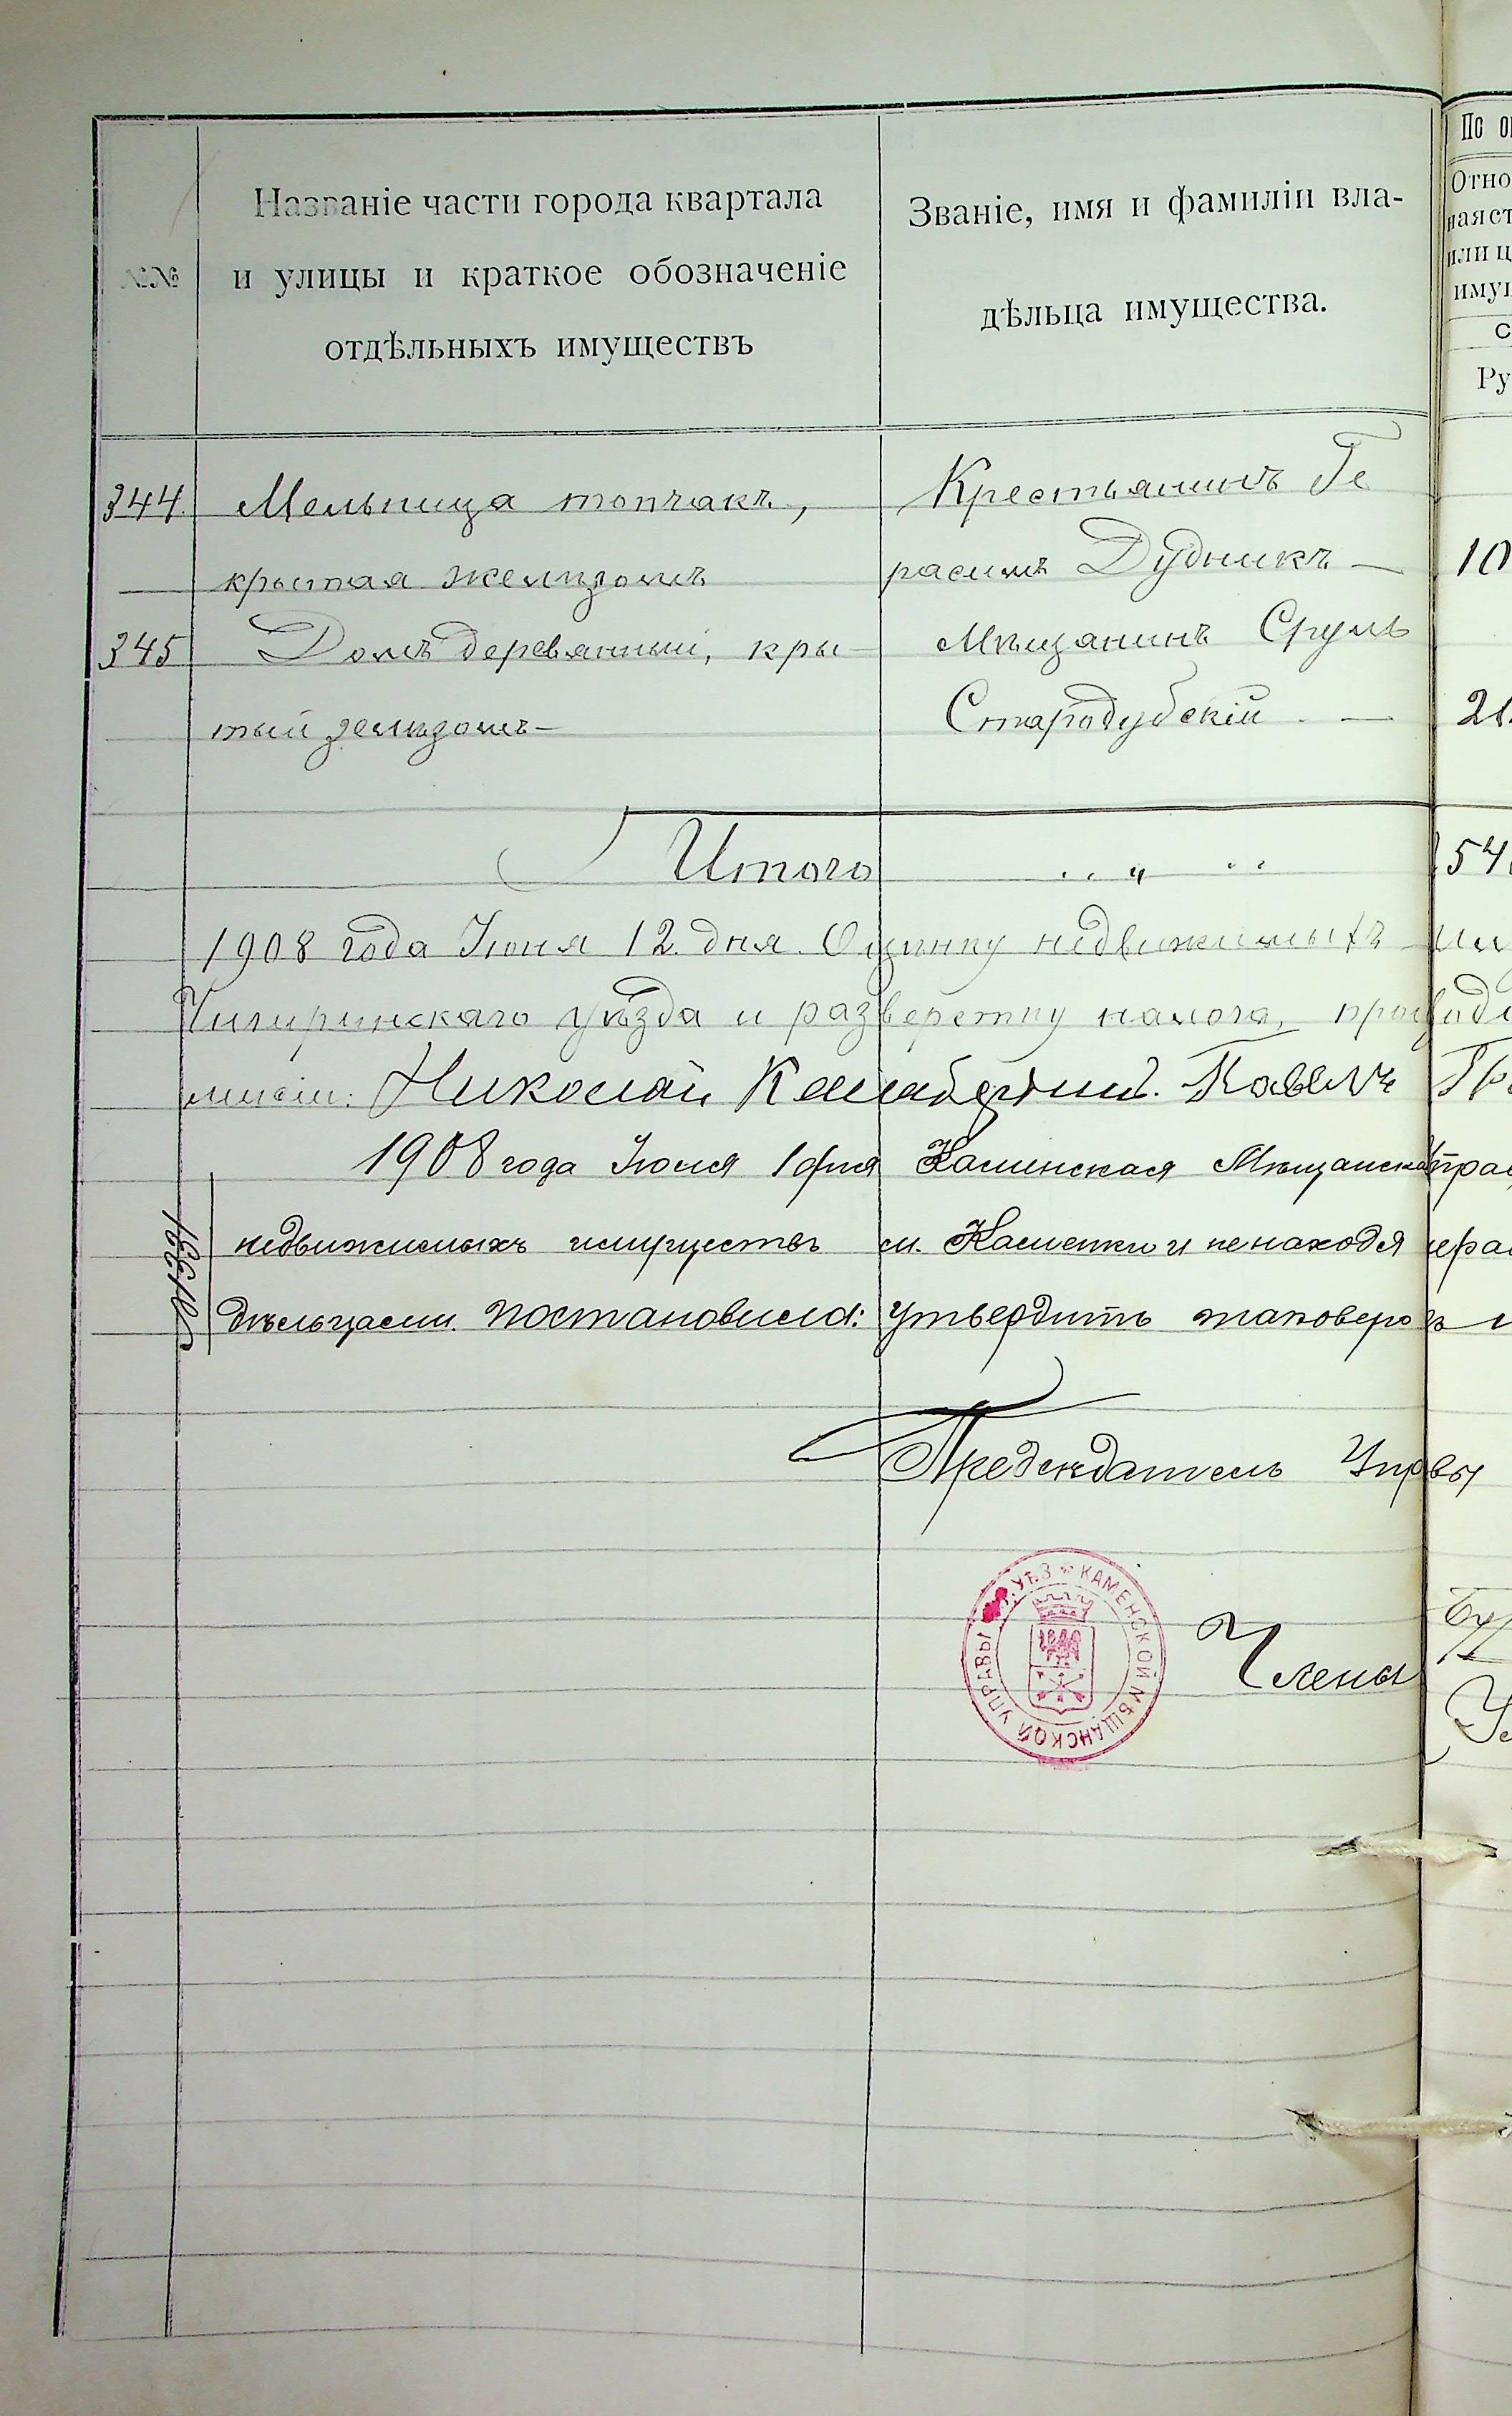 №№
Названіе части города квартала
и улицы и краткое обозначеніе
отдѣльныхъ имуществъ
Званіе, имя и фамиліи вла-
дѣльца имущества.
По
Отно
ная ст
или ц
имущ
С
Ру
344. Мельница топчакъ, Крестьянинъ Ге
крытая желѣзомъ расимъ Дудникъ — 10
345 Домъ деревянный, кры- Мѣщанинъ Сруль
тый желѣзомъ — Стародубскій — 20
Итого " 54
1908 года Іюня 12. дня. Оцѣнку недвижимыхъ им
Чигиринскаго уѣзда и разверстку налога, производи
мисіи: Николай
1908 года Іюля 1 дня Каменская Мѣщанская Управ
недвижимыхъ имуществъ м. Каменки и не находя нера
дѣльцами постановила: Утвердить таковую
Предсѣдатель Управы
Члены
КАМЕНСКОЙ МѢЩАНСКОЙ УПРАВЫ УѢЗ